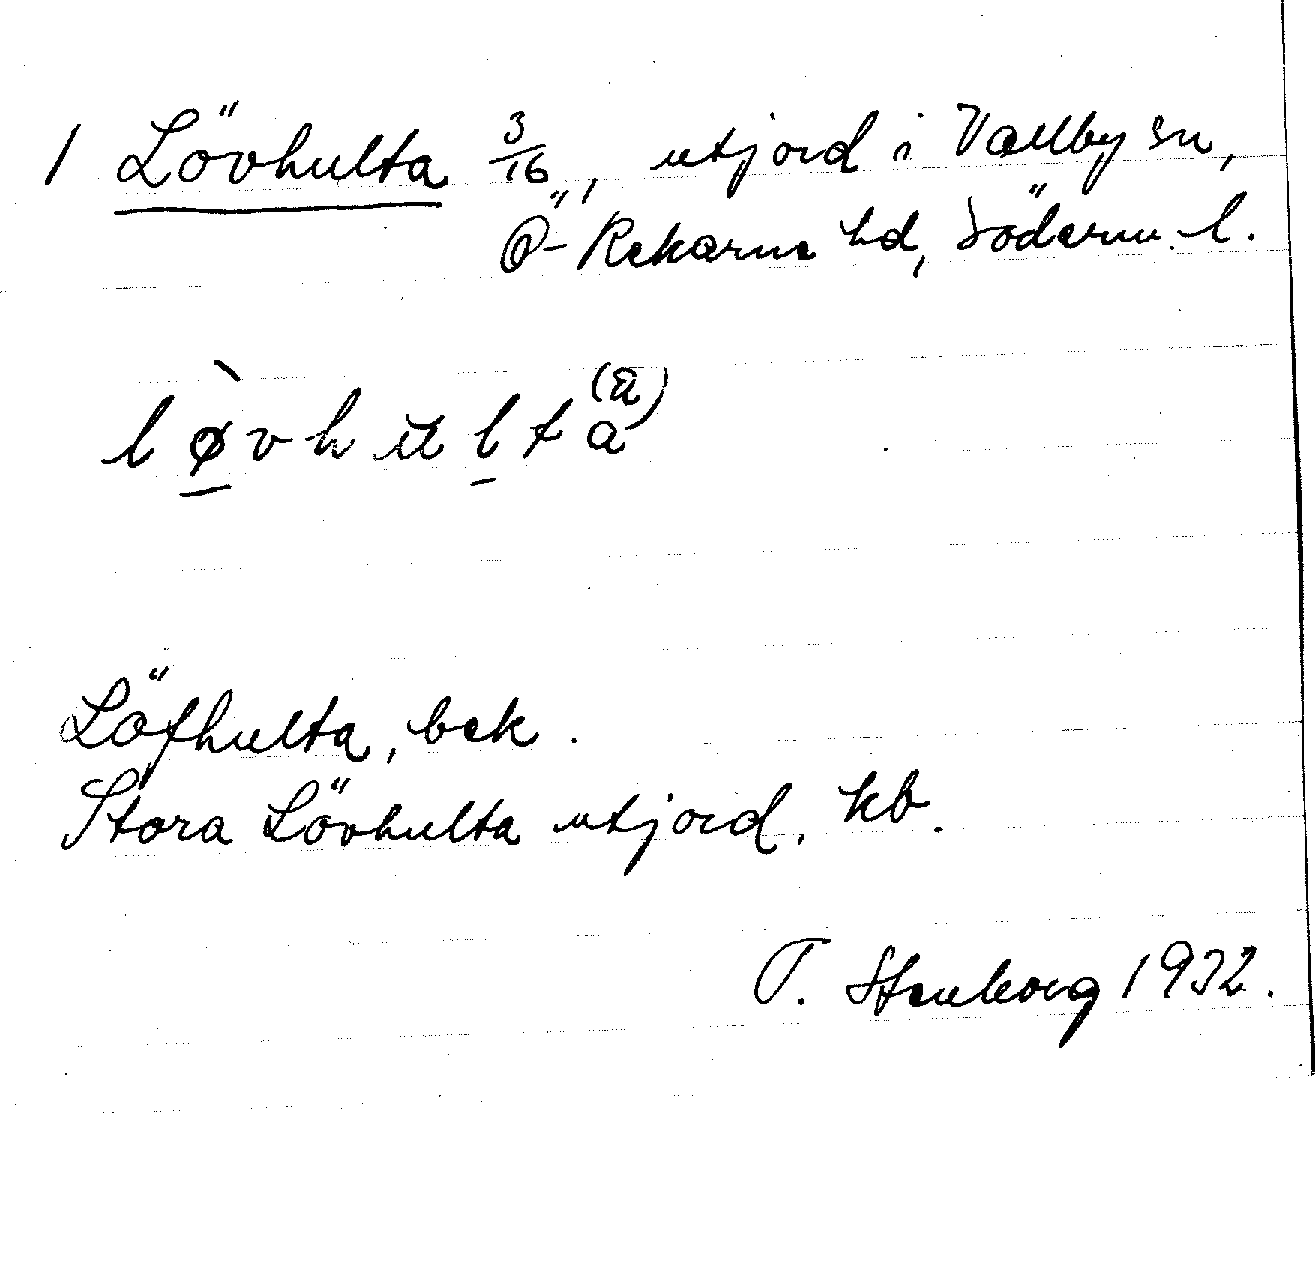 1 Lövhulta 3/16, utjord i Vallby sn,
Ö-Rekarne hd, Söderm. l.
l ø̀ v h u l t a (ä)
Löfhulta, bek.
Stora Lövhulta utjord, kb.
T. Stenborg 1932.